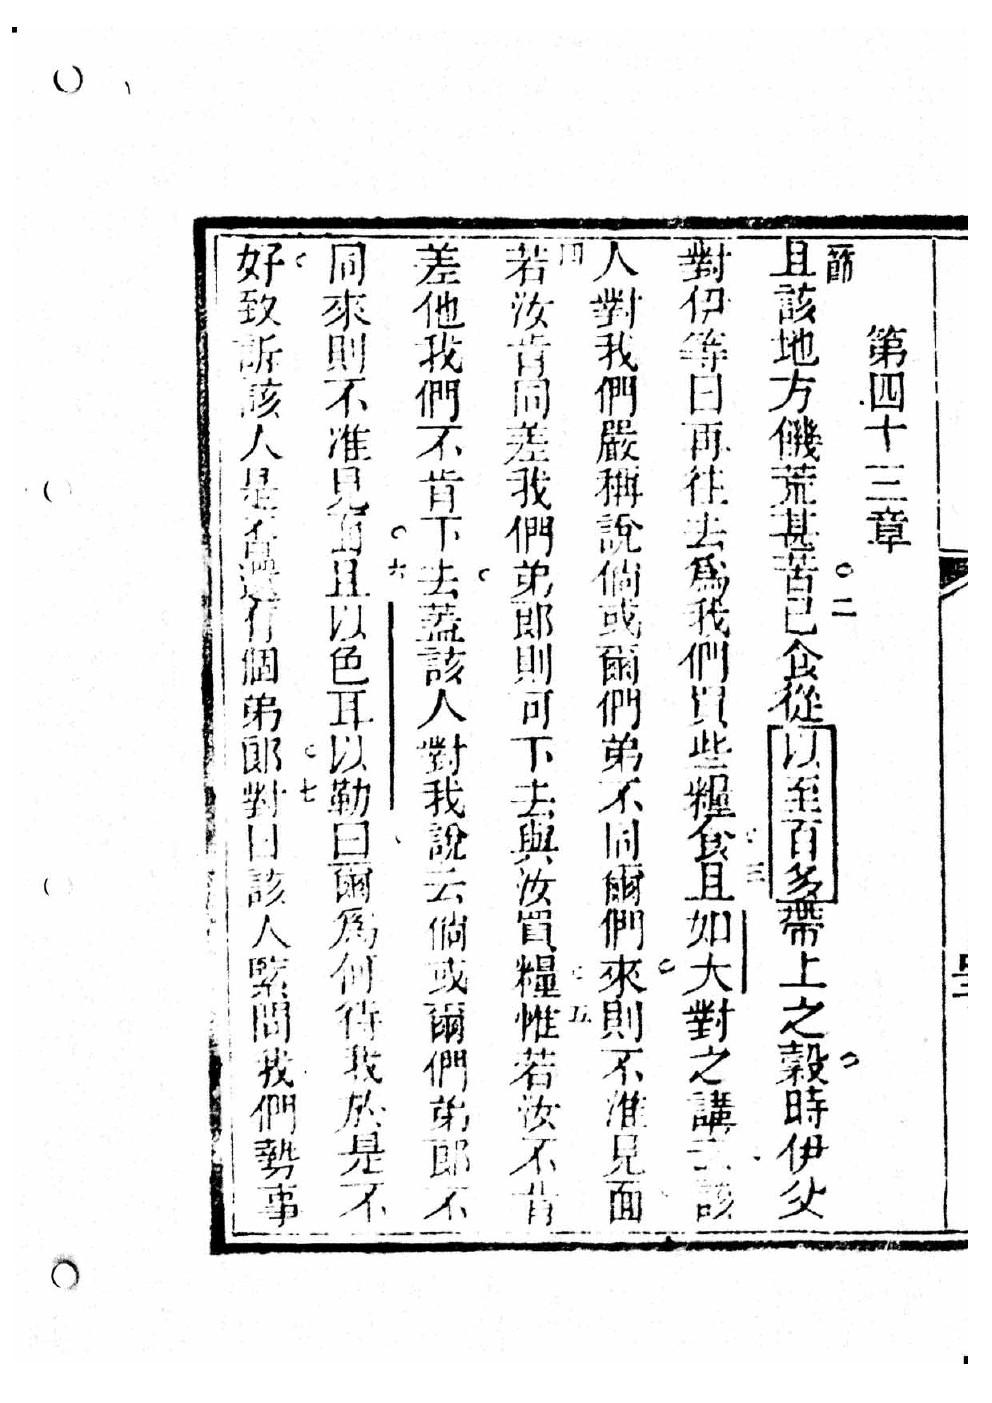 第四十三章
節
且該地方饑荒甚苦二已食從以至百多帶上之穀時伊父
對伊等曰再往去爲我們買些糧食三且如大對之講云該
人對我們嚴稱說倘或爾們弟不同爾們來則不准見面
四若汝肯同差我們弟郎則可下去與汝買糧五惟若汝不肯
差他我們不肯下去蓋該人對我說云倘或爾們弟郎不
同來則不准見面六且以色耳以勒曰爾爲何待我於是不
好致訴該人是有還有個弟郎七對曰該人緊問我們勢事